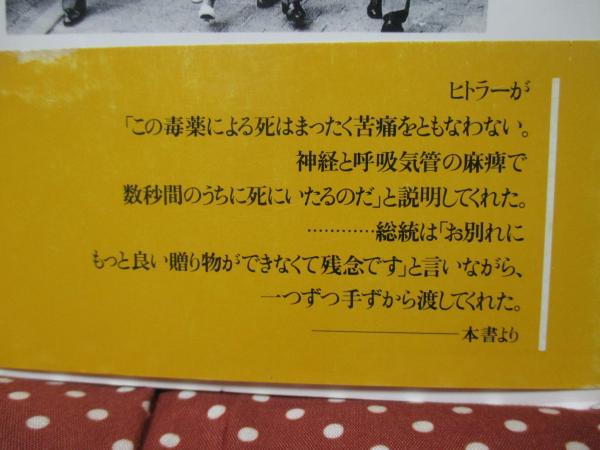 ヒトラーが
「この毒薬による死はまったく苦痛をともなわない。
神経と呼吸気管の麻痺で
数秒間のうちに死にいたるのだ」と説明してくれた。
…………総統は「お別れに
もっと良い贈り物ができなくて残念です」と言いながら、
一つずつ手ずから渡してくれた。
――――本書より